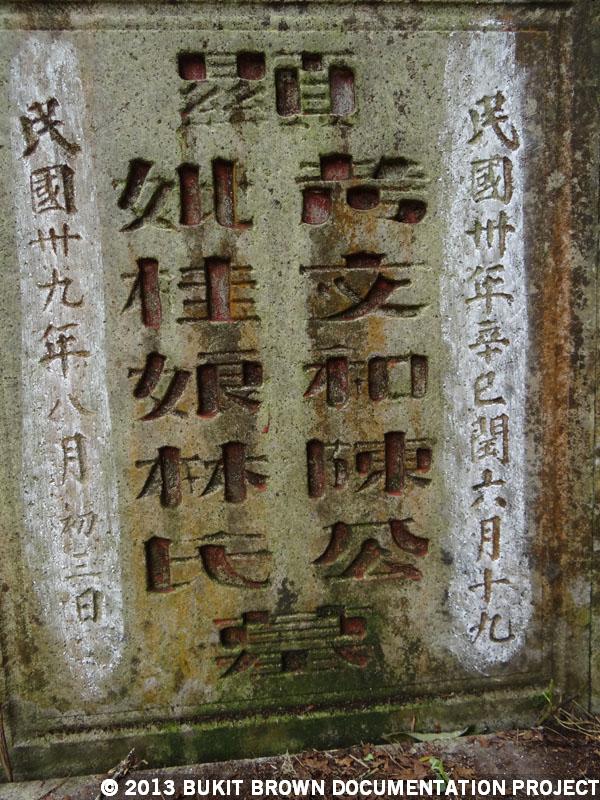 民國卅年辛巳閏六月十九
顯
考文和陳公
妣桂娘林氏
墓
民國卅九年八月初三日
© 2013 BUKIT BROWN DOCUMENTATION PROJECT